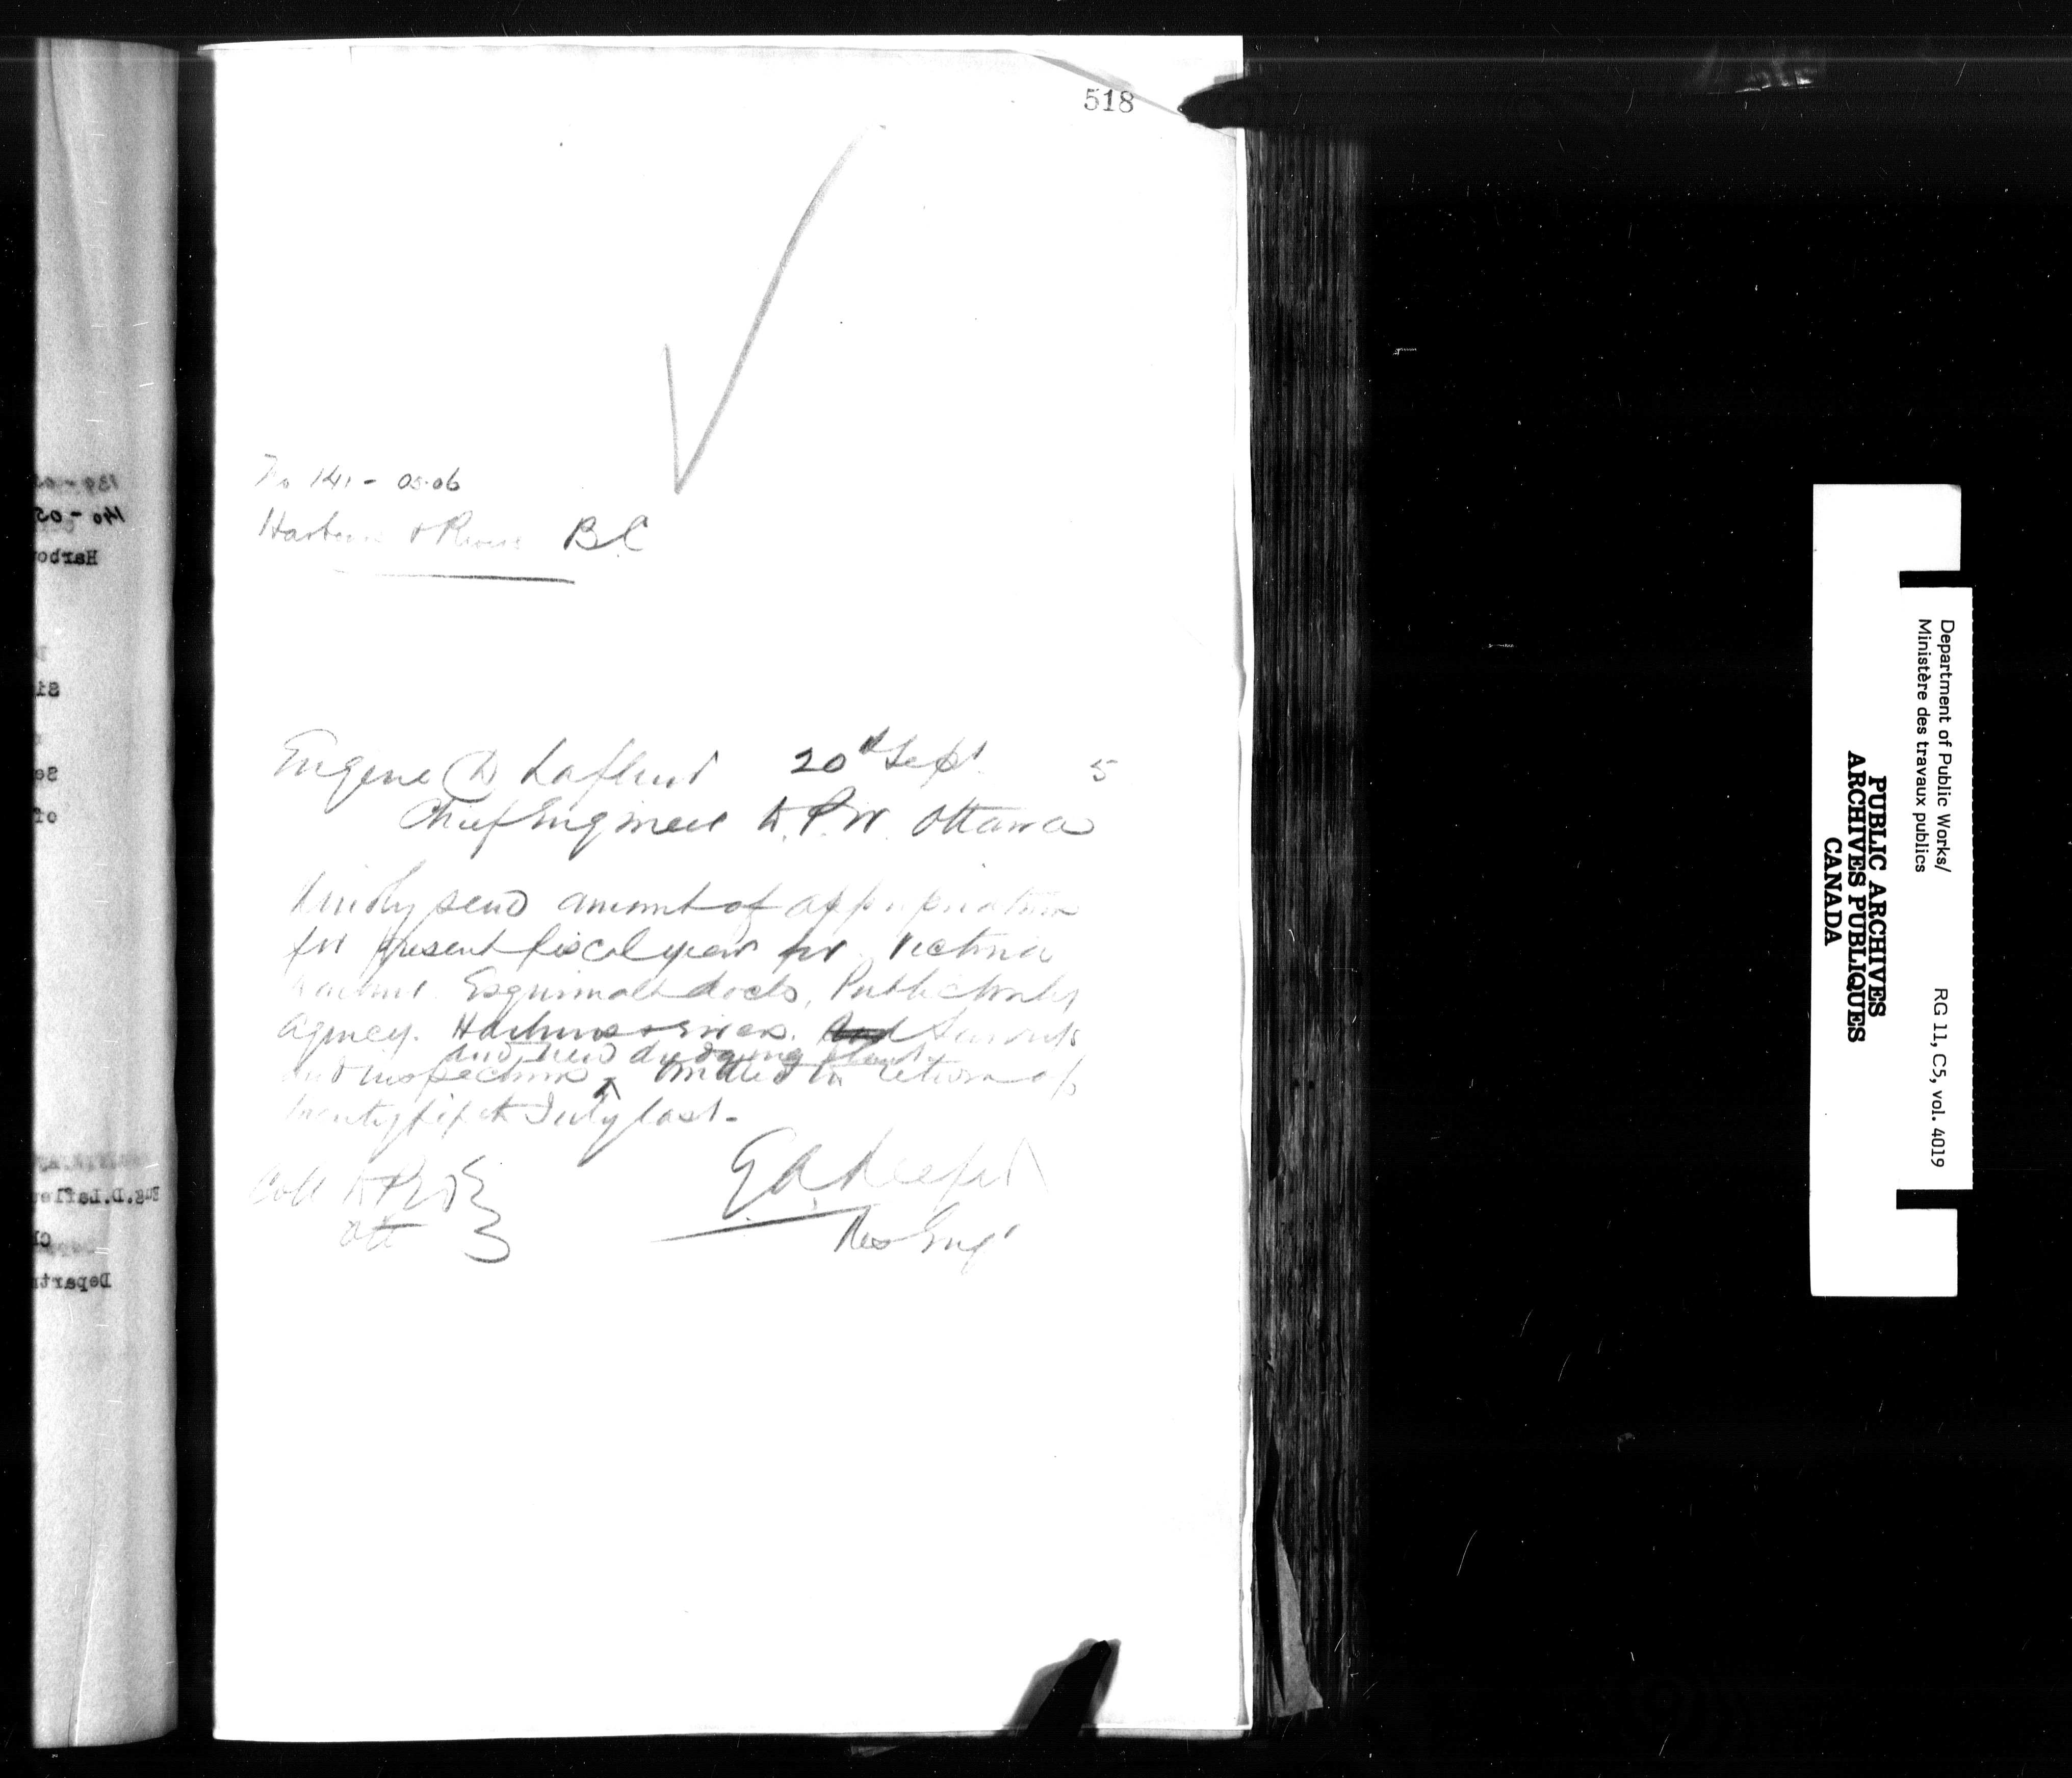 518
No 141 - 05-06
Harbours & Rivers B.C
Eugene D Lafleur 20th Sept. 5
Chief Engineer D.P.W. Ottawa
Kindly send amount of appropriation
for present fiscal year for Victoria
harbour. Esquimalt dock, Public Works
Agency. Harbours & rivers. and Surveys
and new dredging plant
and inspections omitted in return of
twenty fifth July last -
Coll D.P.W
Ott
G A Keefer
Res Engr
139 - 05
140 - 05
Harbo
Si
Se
of
Eug.D.Lafle
Ch
Departm
Department of Public Works/
Ministère des travaux publics
RG 11, C5, vol. 4019
PUBLIC ARCHIVES
ARCHIVES PUBLIQUES
CANADA